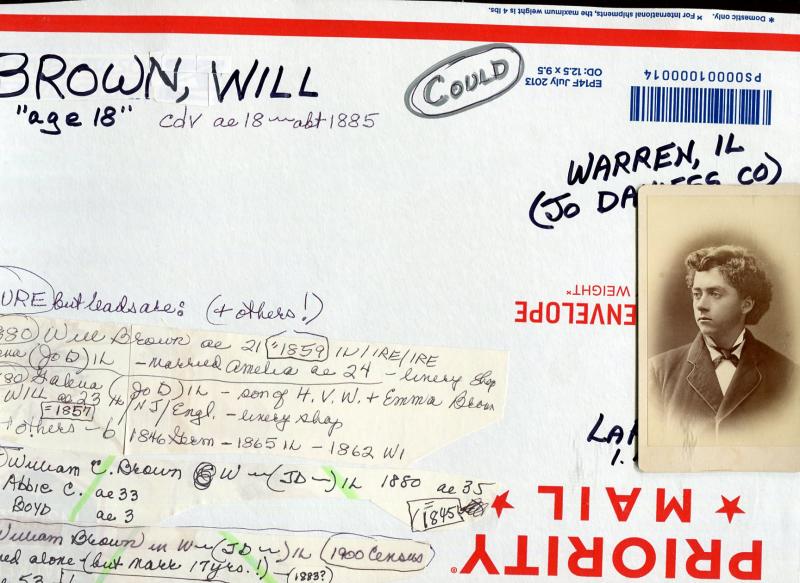 * Domestic only. × For international shipments, the maximum weight is 4 lbs.
PS00001000014
EP14F July 2013
OD: 12.5 x 9.5
BROWN, WILL
COULD
"age 18" cdv ae 18 ~ abt 1885
WARREN, IL
(JO DA ESS CO)
URE but leads are: (+ others!)
WEIGHT™
ENVELOPE
880) Will Brown ae 21 (=1859) IL/IRE/IRE
ena (Jo D) IL - married Amelia ae 24 - livery shop
80 Galena (Jo D) IL - son of H. V. W. + Emma Brown
WILL ae 23 NJ/Engl. - livery shop
=1857
+ others - b 1846 Germ - 1865 IL - 1862 WI
William C. Brown W ~ (JD ~) IL 1880 ae 35
Abbie C. ae 33
Boyd ae 3
=1845
LA
1.
William Brown in W ~ (JD ~) IL (1900 Census)
ed alone (but mark 17 yrs.!)
ae 53
(1883?)
PRIORITY®
★ MAIL ★